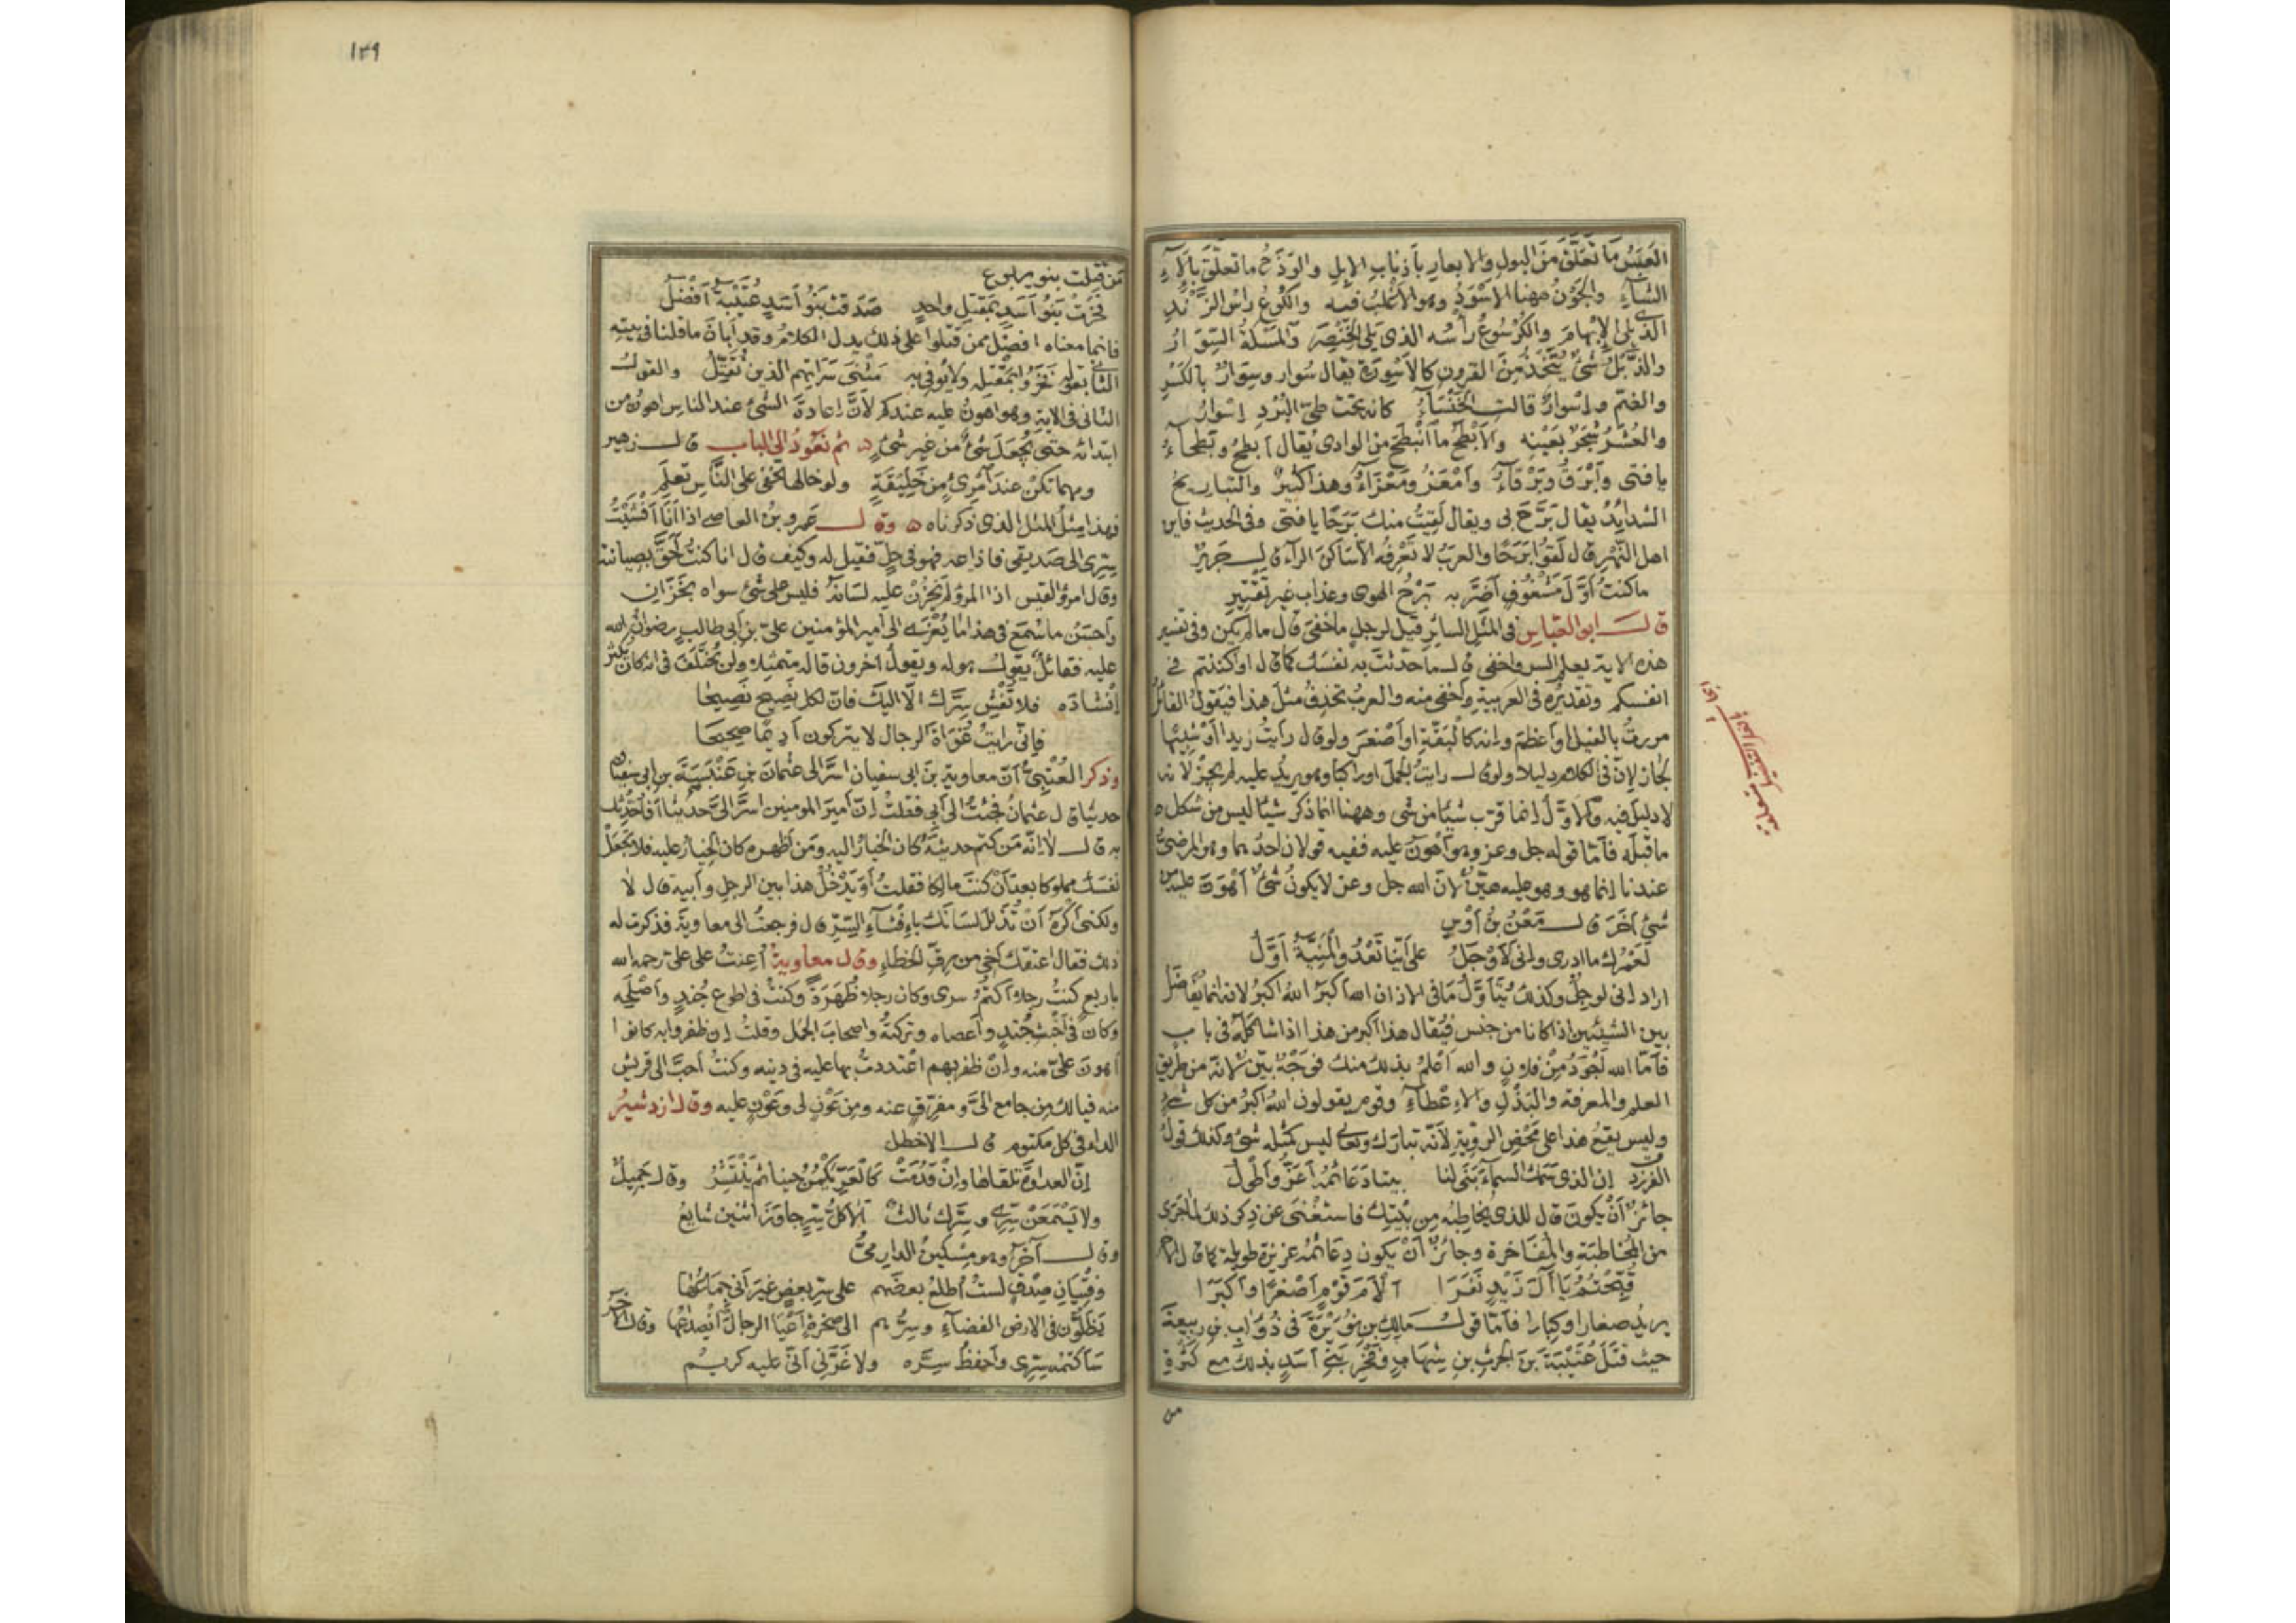 العَبَسُ ما تَعَلَّقَ مِنَ البولِ والابعارِ بأذنابِ الإبلِ والوَذَحُ ما تعلَّقَ بألاءِ
الشّاءِ والجَوْنُ ههنا الاسْوَدُ وهو الأغلبُ فيه والكُوعُ راسُ الزَّنْدِ
الذى يلى الإبهامَ والكُرْسُوعُ رأسُه الذى يلى الخِنْصِرَ والمَسَكَةُ السِّوَارُ
والذَّبْلُ شىءٌ يُتَّخَذُ مِنَ القرونِ كالاَسْوِرَةِ يقال سُوار وسِوَارٌ بالكَسْرِ
والضمِّ وإسْوارٌ قالت الخَنْسَاءُ كانه تحت طىِّ البُرْدِ إسْوارُ
والعُشَرُ شَجَرٌ بعَيْنِه والأبْطَحُ ما انْبَطَحَ من الوادى يُقال أبطحُ وبَطحاءُ
يا فتى وأبْرَقُ وبَرْقَاءُ وأَمْعَزُ ومَعْزَاءُ وهذا كثيرٌ والتباريحُ
الشدايِدُ يقال بَرَّحَ بى ويقال لَقِيتُ منك بَرَحًا يا فتى وفى الحديث فاين
اهل النَّهْرِ قال لَقُوا بَرَحًا والعربُ لا تَعْرِفُه الاّ ساكنَ الراء قال جَرِيرٌ
ما كنتُ أوَّلَ مَشْعُوفٍ أضَرَّ به بَرْحُ الهوى وعذاب غير تفتيرِ
قال ابو العبّاس فى المَثَلِ السايِرِ قيل لرجل ما خَفِىَ قال ما لم يكن وفى تفسير
هذه الاية يعلم السر واخفى قال ما حدّثتَ به نفسَك كما قال او اكننتم فى
انفسكم وتقديرُه فى العربيةِ وأخفى منه والعربُ تحذِفُ مثلَ هذا فيقولُ القائلُ
مررتُ بالفيل او أعظمَ وإنه كالبَقَّةِ او أصْغَرَ ولو قال رأيتُ زيدا أو شبيها
لجازَ لإنّ فى الكلام دليلا ولو قال رايتُ الجملَ او راكبا وهو يريد عليه لم يجُزْ لانه
لا دليل فيه والاوّلُ إنما قرّب شيئا من شى وههنا انما ذكر شيئا ليس من شكل ه
ما قبلَه فأمّا قوله جل وعز وهو أهْوَنُ عليه ففيه قولان احدُهما وهو المرضىُّ
عندنا إنما هو وهو عليه هيّنٌ لأنّ الله جل وعز لا يكونُ شىءٌ أهْوَنَ عليه من
شىءٍ آخَرَ قال مَعْنُ بنُ أوْسٍ
لَعَمْرُكَ ما ادرى وإنى لأوْجَلُ على أيِّنا تَعْدُو المَنِيَّةُ أوّلُ
اراد إنى لَوجِلٌ وكذلك يُتَأوَّلُ ما فى الاذان الله أكبرُ اللهُ اكبرُ لانه انما يُفاضَلُ
بين الشيئين إذا كانا من جنس فيُقال هذا اكبر من هذا اذا شاكَلَه فى باب
فأمّا الله أجْوَدُ مِنْ فلانٍ والله أعْلَمُ بذلك منك فوَجْهٌ بيّنٌ لأنّه من طريق
العلم والمعرفة والبَذْلِ والإعْطاءِ وقوم يقولون اللهُ اكبرُ من كل شىءٍ
وليس يقعُ هذا على مَحْضِ الرويّةِ لأنّه تبارك وتعالى ليس كمثله شىءٌ وكذلك قولُ
الفرزدق إن الذى سَمَكَ السماءَ بَنَى لنا بيتا دَعائمُه أعَزُّ وأطْولُ
جائزٌ أنْ يكونَ قال للذى يُخاطِبُه مِن بَيْتِك فاستَغْنَى عن ذِكر ذلك لِمَا جَرَى
من المُخاطبةِ والمُفاخرةِ وجائزٌ أنْ يكون دِعَائمُه عزيزةً طويلةً كما قال الآخر
قُبِّحْتُمُ يَا آلَ زَيْدٍ نَفَرَا ألأمَ قَوْمٍ أصْغَرًا وأكْبَرَا
يريدُ صغارا وكبارا فأمّا قولُ مالِكِ بنِ نُوَيْرَةَ فى ذُؤَابِ بنِ ربيعةَ
حيثُ قَتَلَ عُتَيْبَةَ بنَ الحرث بنِ شِهَابٍ وفَخْرِ بنى أسَدٍ بذلك مع كَثْرةِ
من
مَن قتلت بنو يربوع
فَخَرَتْ بَنُو أسَدٍ بمَقْتَلِ واحدٍ صَدَقتْ بَنُو أسَدٍ عُتَيْبَةُ أفضلُ
فانما معناه افضلُ ممن قتلوا على ذلك يدل الكلامُ وقد أبانَ ما قلنا فى بيته
الثانى بقوله فَخَرُوا بمَقْتَلِه ولا يُوفى به مَثْنَى سَرَاتِهم الذين نُقَتِّلُ والقولُ
الثانى فى الاية وهو اهونُ عليه عندكم لأنَّ إعادةَ الشىءِ عند الناس اهونُ من
ابتدائه حتى يُجْعَلَ شىءٌ من غيرِ شىءٍ ه ثم نَعُودُ الى الباب قال زهير
ومهما تكنْ عند امْرِئٍ مِن خَلِيقَةٍ ولو خالها تخفى على النّاسِ تُعْلَمِ
فهذا مِثلُ المثل الذى ذكرناه ه وقال عَمرو بنُ العاصى اذا أنَا أفْشَيْتُ
سِرِّى الى صَديقى فاذاعه فهو فى حِلٍّ فقيل له وكيف قال انا كنتُ أحَقَّ بصيانته
وقال امرؤ القيس اذا المرؤ لم يَخْزُنْ عليه لسانَهُ فليس على شىءٍ سواه بخَزّانِ
وأحسَنُ ما سُمِعَ فى هذا ما يُعْزَى الى أمير المؤمنين علىِّ بن أبى طالبٍ رضوان الله
عليه فقائلٌ يقولُ هو له ويقولُ آخرون قاله متمثلا ولن يُختَلَفَ فى انه كان يُكثر
إنْشادَه فلا تُفْشِ سِرَّك الاّ اليك فانّ لكل نَصيحٍ نَصيحَا
فإنّى رايتُ غُوَاةَ الرجال لا يتركون أديمًا صحيحَا
وذكر العُتْبِىُّ أنّ معاوية بنَ ابى سفيان اسَرَّ الى عثمانَ بنِ عَنْبَسَةَ بن ابى سفيان
حديثا قال عثمانُ فجئتُ الى أبى فقلتُ إنّ أميرَ المومنين اسَرَّ إلىَّ حديثا أفأُحَدِّثُك
به قال لا إنّه مَن كتم حديثَه كان الخيارُ اليه ومَن أظهره كان الخِيارُ عليه فلا تَجعَلْ
نفسَك مملوكا بعد أنْ كنتَ مالِكا فقلتُ أوَيَدْخُلُ هذا بين الرجل وأبيه قال لا
ولكنى أكْرَهُ أنْ تُذَلِّلَ لسانَك بإفْشَاءِ السِّرِّ قال فرجعتُ الى معاويةَ فذكرتُ له
ذلك فقال اعتقك أخى من رِقِّ الخطاءِ وقال معاوية أُعِنتُ على علىّ رحمه الله
باربع كنتُ رجلا أكتُمُ سرى وكان رجلا ظُهَرَةً وكنتُ فى اطوع جُندٍ واصْلَحِه
وكان فى أخْبَثِ جُندٍ وأعصاه وتركتُه واصحابَ الجمل وقلتُ إن ظفروا به كانوا
اهونَ علىّ منه وإنْ ظفر بهم اعْتددتُ بها عليه فى دينه وكنتُ أحبَّ الى قريش
منه فيا لك مِن جامع الىَّ ومفرّقٍ عنه ومِن عَوْنٍ لى وعَوْنٍ عليه وقال ازدشيرُ
الداءُ فى كل مكتوم قال الاخطل
إنّ العداوةَ تلقاها وإنْ قَدُمَتْ كالعَرِّ يَكْمُنُ حينا ثم يَنْتَشِرُ وقال جَمِيلٌ
ولا يَسْمَعَنْ سِرِّى وسِرَّك ثالثٌ ألا كلُّ سِرٍّ جاوَزَ اثنين شايعُ
وقال آخَرُ وهو مِسْكينٌ الدارِمىُّ
وفِتْيانِ صِدْقٍ لستُ أُطلعُ بعضَهم على سِرِّ بعضٍ غيرَ أنى جِمَاعُها
يَظَلُّون فى الارض الفضاءِ وسِرُّهم الى صخرةٍ أعْيَا الرجالَ انْصِداعُها وقال آخَرُ
سَأكتمُه سِرِّى وأحفظُ سِرَّه ولا غَرَّنى أنّى عليه كريمُ
١٣٩